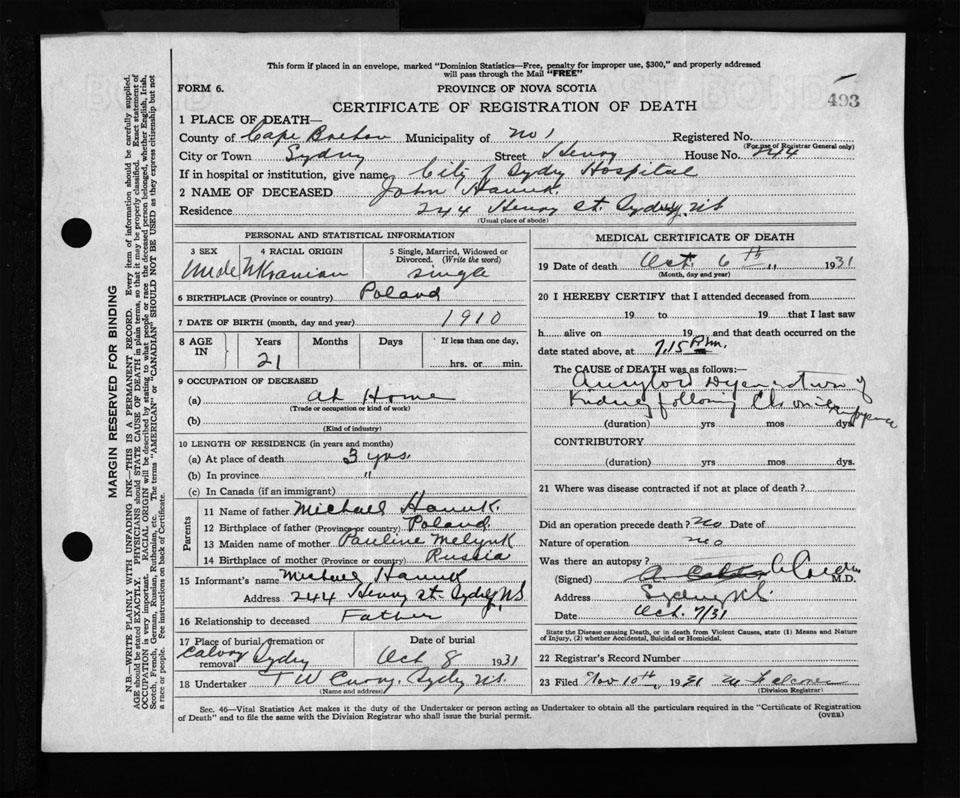 This form if placed in an envelope, marked "Dominion Statistics—Free, penalty for improper use, $300," and properly addressed
will pass through the Mail "FREE"
FORM 6.
PROVINCE OF NOVA SCOTIA
493
CERTIFICATE OF REGISTRATION OF DEATH
1 PLACE OF DEATH—
County of Cape Breton Municipality of No 1 Registered No.
(For use of Registrar General only)
City or Town Sydney Street Henry House No. 244
If in hospital or institution, give name City of Sydney Hospital
2 NAME OF DECEASED John Hawuk.
Residence 244 Henry St. Sydney NS
(Usual place of abode)
PERSONAL AND STATISTICAL INFORMATION
3 SEX 4 RACIAL ORIGIN 5 Single, Married, Widowed or Divorced. (Write the word)
Male Ukranian single
6 BIRTHPLACE (Province or country) Poland
7 DATE OF BIRTH (month, day and year) 1910
8 AGE IN Years Months Days If less than one day,
21 hrs. or min.
9 OCCUPATION OF DECEASED
(a) at Home
(Trade or occupation or kind of work)
(b)
(Kind of industry)
10 LENGTH OF RESIDENCE (in years and months)
(a) At place of death 3 yrs.
(b) In province "
(c) In Canada (if an immigrant)
Parents
11 Name of father Michael Hawuk.
12 Birthplace of father (Province or country) Poland.
13 Maiden name of mother Pauline Melynk
14 Birthplace of mother (Province or country) Russia
15 Informant's name Michael Hawuk
Address 244 Henry St. Sydney NS
16 Relationship to deceased Father
17 Place of burial, cremation or removal Calvary Sydney
Date of burial Oct 8 1931
18 Undertaker T W Curry. Sydney NS.
(Name and address)
MEDICAL CERTIFICATE OF DEATH
19 Date of death Oct. 6th 1931
(Month, day and year)
20 I HEREBY CERTIFY that I attended deceased from
19 to 19 that I last saw
h alive on 19 and that death occurred on the
date stated above, at 7.15 P.m.
The CAUSE of DEATH was as follows:—
Amyloid Degeneration of
Kidney following Chronic
(duration) yrs mos dys.
CONTRIBUTORY
(duration) yrs mos dys.
21 Where was disease contracted if not at place of death?
Did an operation precede death? No Date of
Nature of operation no
Was there an autopsy?
(Signed) M.D.
Address Sydney N.S.
Date Oct. 7/31
State the Disease causing Death, or in death from Violent Causes, state (1) Means and Nature
of Injury, (2) whether Accidental, Suicidal or Homicidal.
22 Registrar's Record Number
23 Filed Nov 10th, 1931
(Division Registrar)
Sec. 46—Vital Statistics Act makes it the duty of the Undertaker or person acting as Undertaker to obtain all the particulars required in the "Certificate of Registration
of Death" and to file the same with the Division Registrar who shall issue the burial permit.
(OVER)
MARGIN RESERVED FOR BINDING
N.B.—WRITE PLAINLY WITH UNFADING INK—THIS IS A PERMANENT RECORD. Every item of information should be carefully supplied.
AGE should be stated EXACTLY. PHYSICIANS should STATE CAUSE OF DEATH in plain terms, so that it may be properly classified. Exact statement of
OCCUPATION is very important. RACIAL ORIGIN will be described by stating to what people or race the deceased person belonged, whether English, Irish,
Scotch, French, German, Russian, Ruthenian, etc. The terms "AMERICAN" or "CANADIAN" SHOULD NOT BE USED as they express citizenship but not
a race or people. See instructions on back of Certificate.